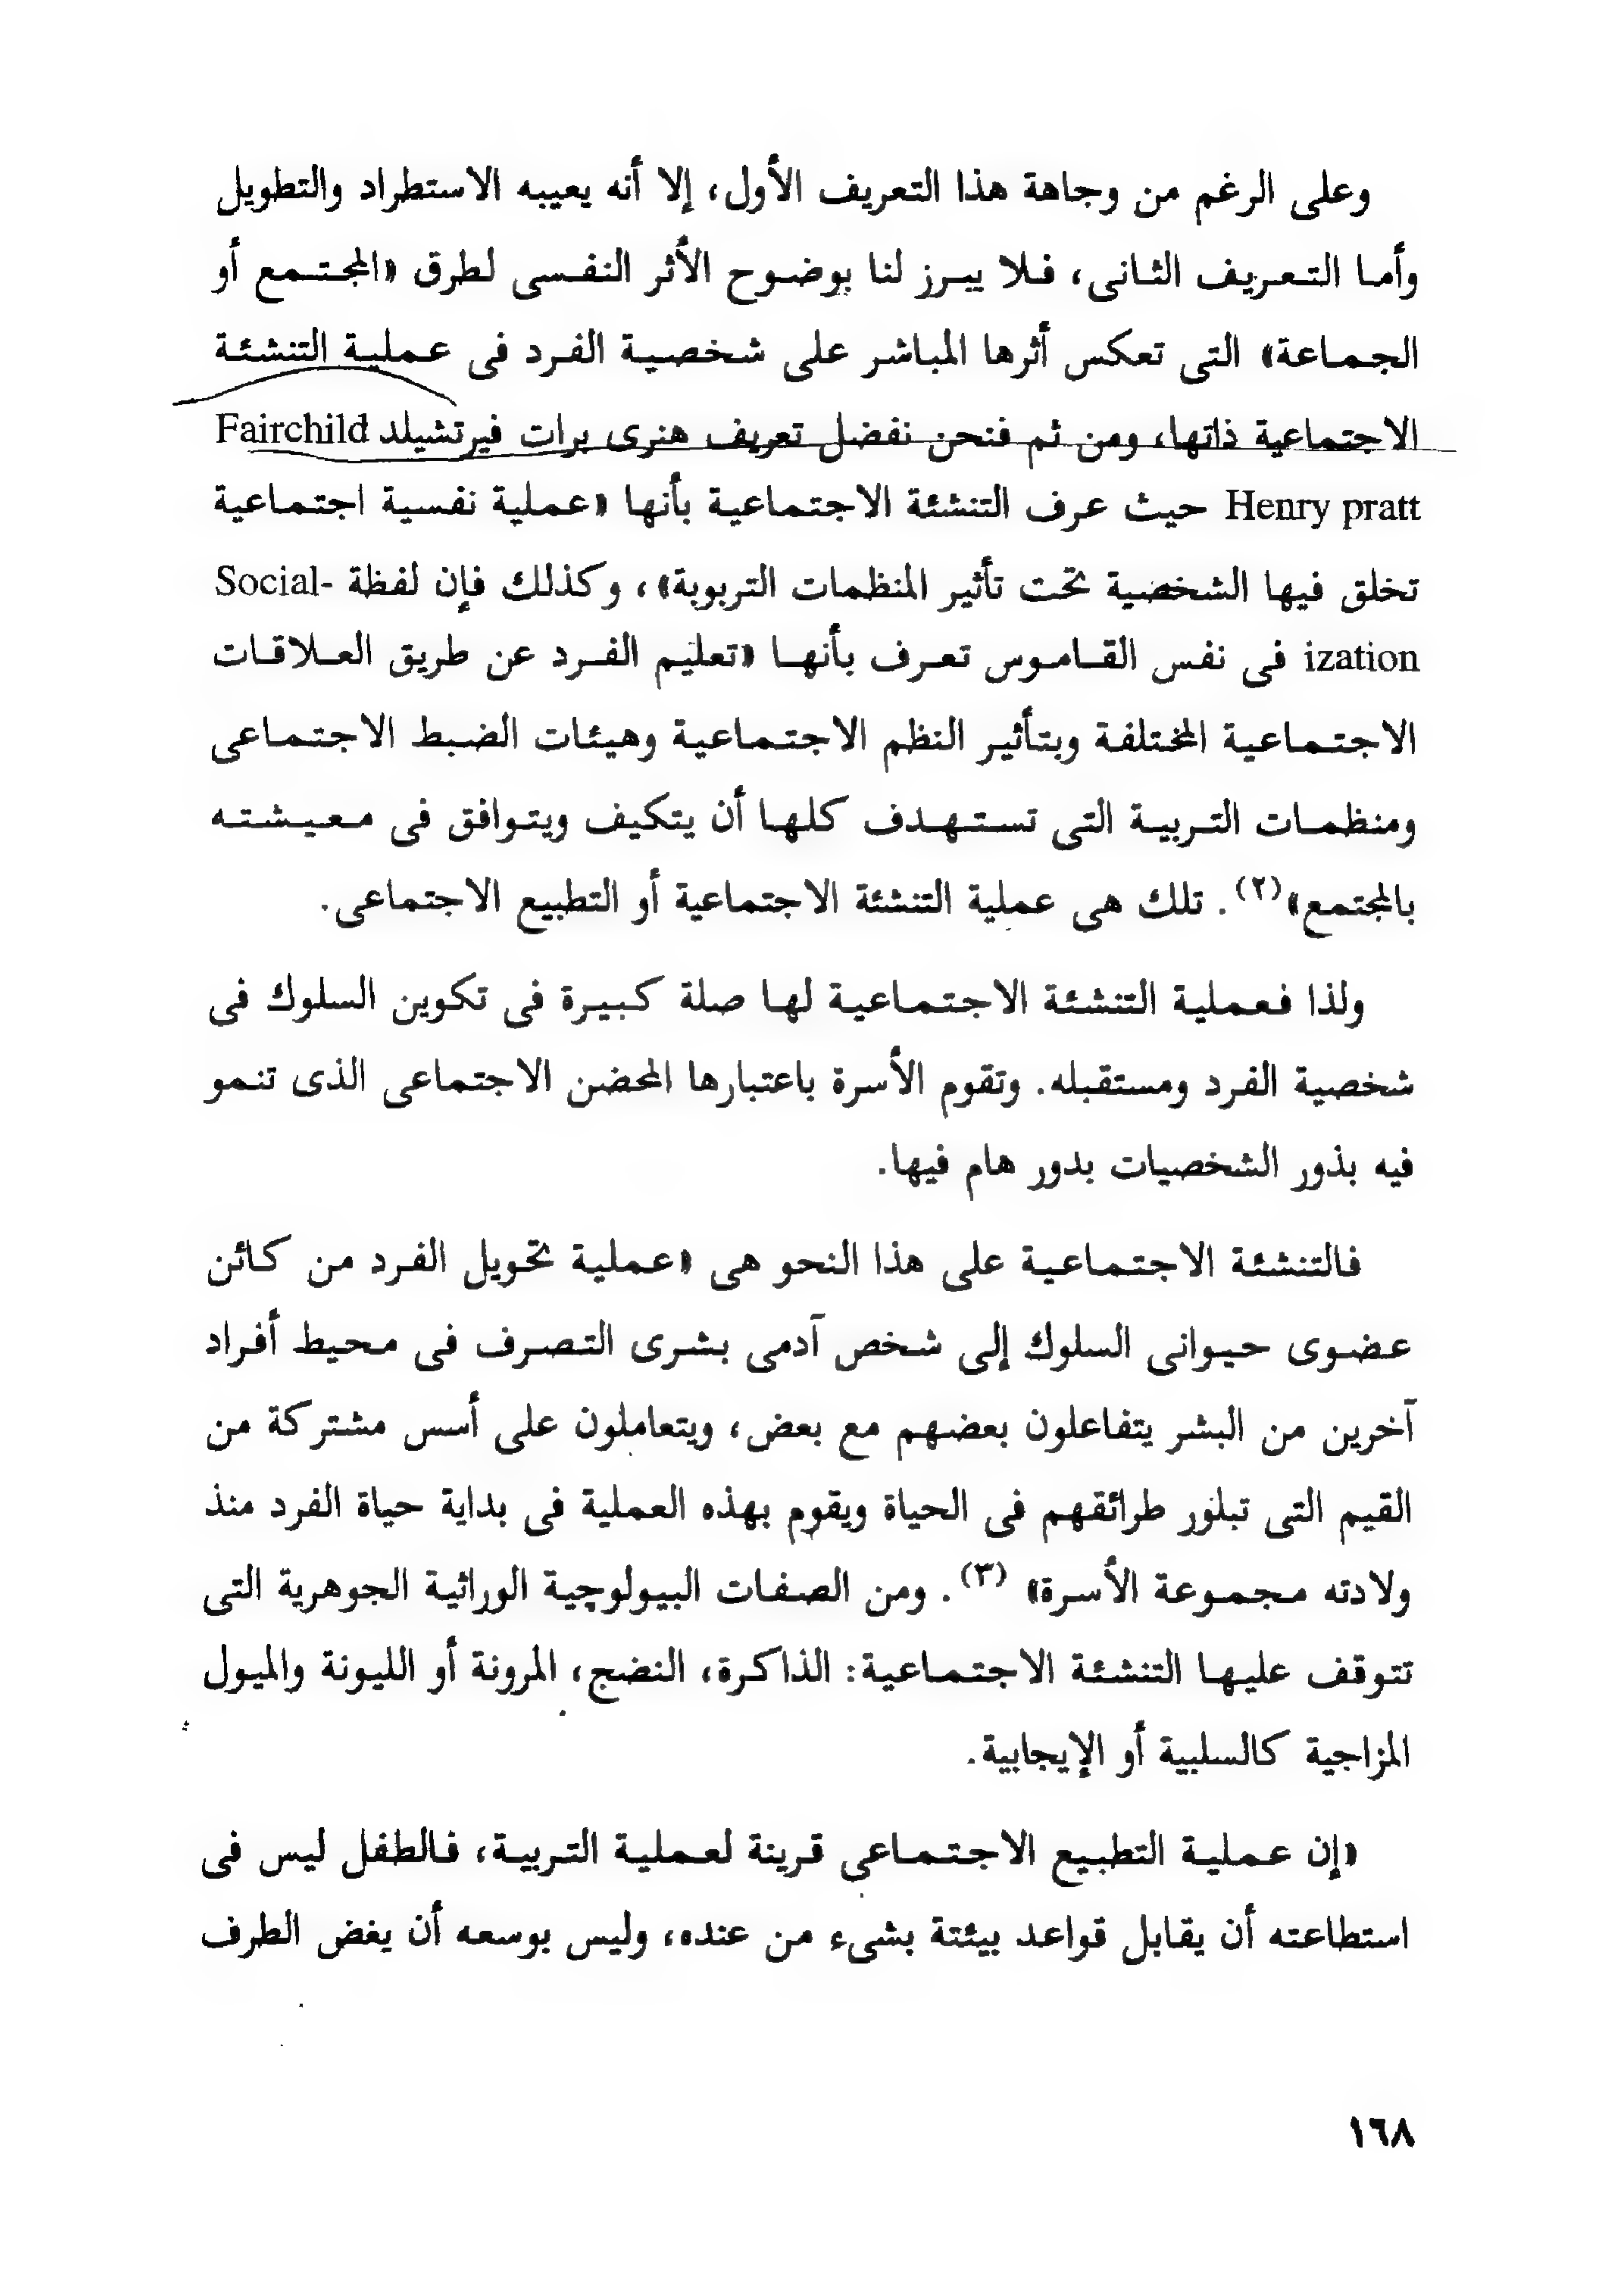 وعلى الرغم من وجاهة هذا التعريف الأول، إلا أنه يعيبه الاستطراد والتطويل
وأما التعريف الثانى، فلا يبرز لنا بوضوح الأثر النفسى لطرق «المجتمع أو
الجماعة» التى تعكس أثرها المباشر على شخصية الفرد فى عملية التنشئة
الاجتماعية ذاتها، ومن ثم فنحن نفضل تعريف هنرى برات فيرتشيلد Fairchild
Henry pratt حيث عرف التنشئة الاجتماعية بأنها «عملية نفسية اجتماعية
تخلق فيها الشخصية تحت تأثير المنظمات التربوية»، وكذلك فإن لفظة Social-
ization فى نفس القاموس تعرف بأنها «تعليم الفرد عن طريق العلاقات
الاجتماعية المختلفة وبتأثير النظم الاجتماعية وهيئات الضبط الاجتماعى
ومنظمات التربية التى تستهدف كلها أن يتكيف ويتوافق فى معيشته
بالمجتمع»(٢). تلك هى عملية التنشئة الاجتماعية أو التطبيع الاجتماعى.
ولذا فعملية التنشئة الاجتماعية لها صلة كبيرة فى تكوين السلوك فى
شخصية الفرد ومستقبله. وتقوم الأسرة باعتبارها المحضن الاجتماعى الذى تنمو
فيه بذور الشخصيات بدور هام فيها.
فالتنشئة الاجتماعية على هذا النحو هى «عملية تحويل الفرد من كائن
عضوى حيوانى السلوك إلى شخص آدمى بشرى التصرف فى محيط أفراد
آخرين من البشر يتفاعلون بعضهم مع بعض، ويتعاملون على أسس مشتركة من
القيم التى تبلور طرائقهم فى الحياة ويقوم بهذه العملية فى بداية حياة الفرد منذ
ولادته مجموعة الأسرة» (٣). ومن الصفات البيولوچية الوراثية الجوهرية التى
تتوقف عليها التنشئة الاجتماعية: الذاكرة، النضج، المرونة أو الليونة والميول
المزاجية كالسلبية أو الإيجابية.
«إن عملية التطبيع الاجتماعى قرينة لعملية التربية، فالطفل ليس فى
استطاعته أن يقابل قواعد بيئتة بشىء من عنده، وليس بوسعه أن يغض الطرف
١٦٨